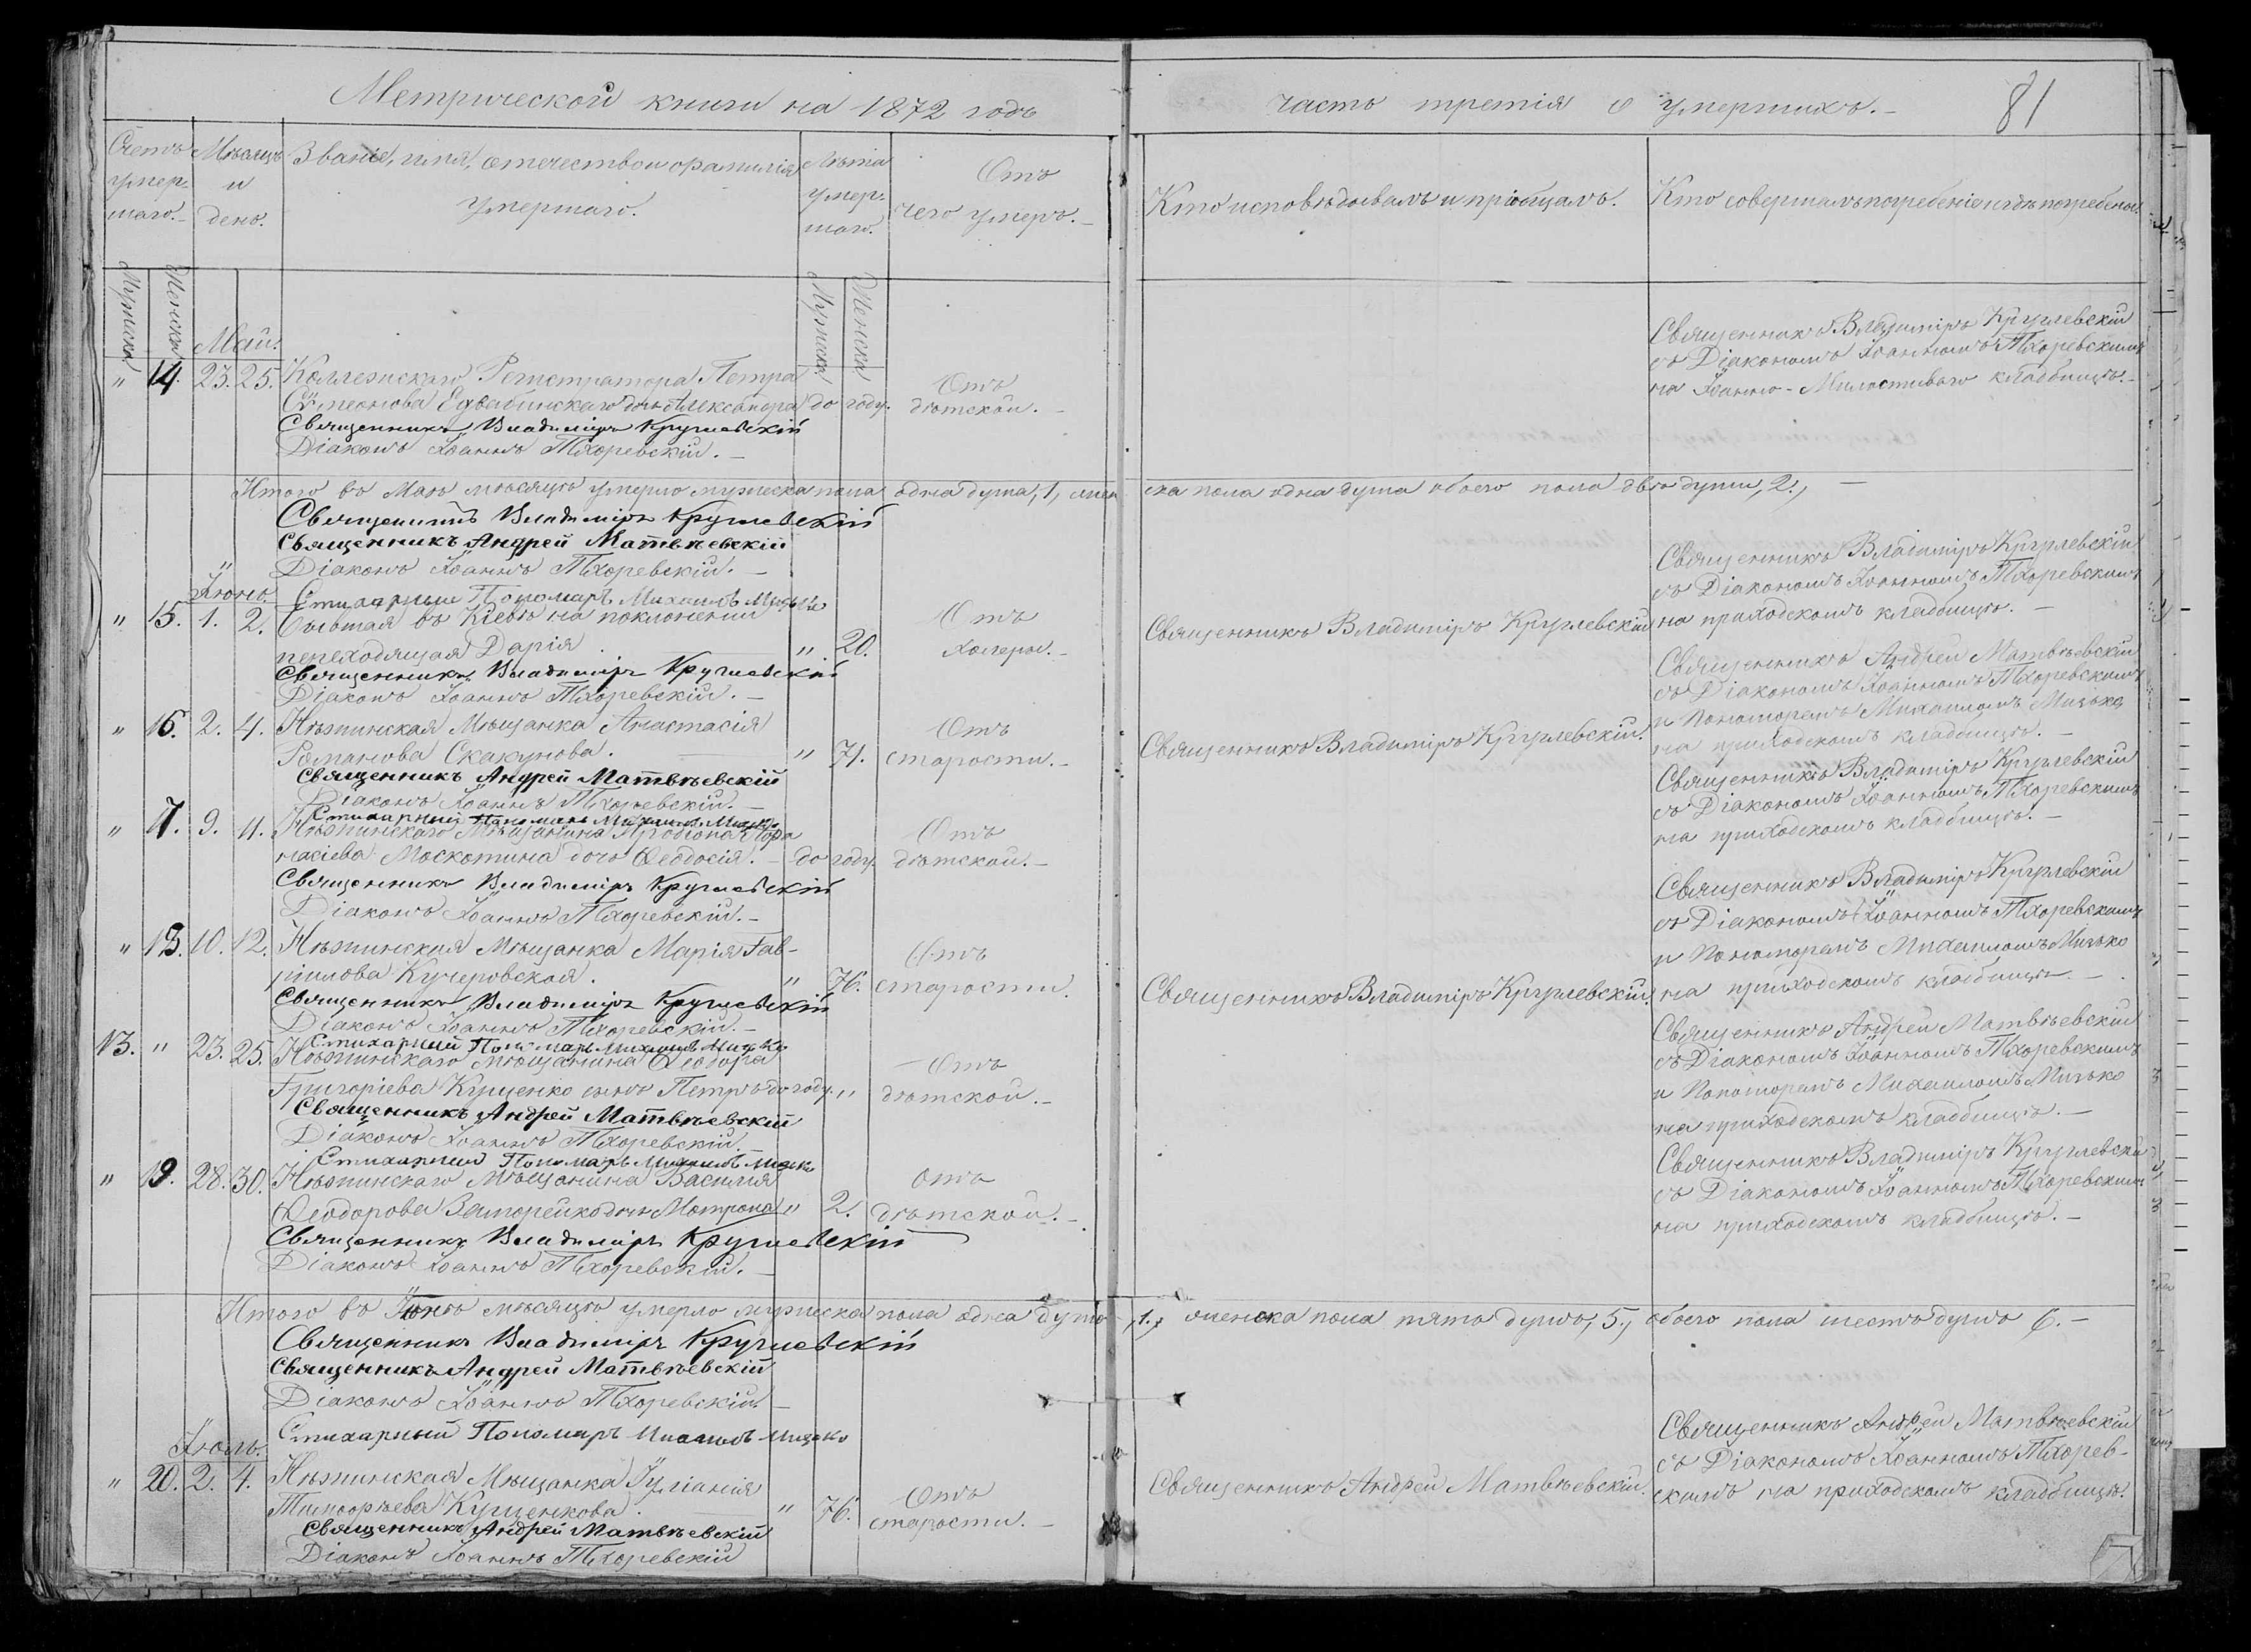 Метрической книги на 1872 годъ
часть третія о умершихъ.
81
Счетъ умер-
шаго.
Мѣсяцъ
и
день.
Званіе, имя, отечество и фамилія
умершаго.
Лѣта
умер-
шаго.
Отъ
чего умеръ.
Кто исповѣдывалъ и пріобщалъ.
Кто совершалъ погребеніе и гдѣ погребены.
Мужеска
Женска
Мужеска
Женска
Май.
" 14. 23. 25. Коллежскаго Регистратора Петра
Сѵмеонова Едвабинскаго дочь Александра до году. Отъ
дѣтской.
Священникъ Владиміръ Круглевскій
Діаконъ Іоаннъ Тхоревскій.
Священникъ Владиміръ Круглевскій
съ Діакономъ Іоанномъ Тхоревскимъ
на Іоанно-Милостиваго кладбищѣ.
Итого въ Маѣ мѣсяцѣ умерло мужеска пола одна душа, 1, жен
ска пола одна душа обоего пола двѣ души, 2.,
Священникъ Владиміръ Круглевскій
Священникъ Андрей Матвѣевскій
Діаконъ Іоаннъ Тхоревскій.
Стихарный Пономарь Михаилъ Мицько
Іюнь.
" 15. 1. 2. Бывшая въ Кіевѣ на поклоненіи
переходящая Дарія " 20. Отъ
холеры.
Священникъ Владиміръ Круглевскій
Діаконъ Іоаннъ Тхоревскій.
Священникъ Владиміръ Круглевскій
Священникъ Владиміръ Круглевскій
съ Діакономъ Іоанномъ Тхоревскимъ
на приходскомъ кладбищѣ.
" 16. 2. 4. Нѣжинская Мѣщанка Анастасія
Романова Скакунова. " 71. Отъ
старости.
Священникъ Андрей Матвѣевскій
Діаконъ Іоаннъ Тхоревскій.
Стихарный Пономарь Михаилъ Мицько
Священникъ Владиміръ Круглевскій.
Священникъ Андрей Матвѣевскій
съ Діакономъ Іоанномъ Тхоревскимъ
и Пономоремъ Михаиломъ Мицько
на приходскомъ кладбищѣ.
" 17. 9. 11. Нѣжинскаго Мѣщанина
Москотина дочь Ѳеодосія. до году. Отъ
дѣтской.
Священникъ Владиміръ Круглевскій
Діаконъ Іоаннъ Тхоревскій.
Священникъ Владиміръ Круглевскій
съ Діакономъ Іоанномъ Тхоревскимъ
на приходскомъ кладбищѣ.
" 18. 10. 12. Нѣжинская Мѣщанка Марія Гав-
ріилова Кучеровская. " 76. Отъ
старости.
Священникъ Владиміръ Круглевскій
Діаконъ Іоаннъ Тхоревскій.
Стихарный Пономарь Михаилъ Мицько
Священникъ Владиміръ Круглевскій.
Священникъ Владиміръ Круглевскій
съ Діакономъ Іоанномъ Тхоревскимъ
и Пономоремъ Михаиломъ Мицько
на приходскомъ кладбищѣ.
13. " 23. 25. Нѣжинскаго Мѣщанина Ѳеодора
Григоріева Кущенко сынъ Петръ до году. " Отъ
дѣтской.
Священникъ Андрей Матвѣевскій
Діаконъ Іоаннъ Тхоревскій.
Стихарный Пономарь Михаилъ Мицько
Священникъ Андрей Матвѣевскій
съ Діакономъ Іоанномъ Тхоревскимъ
и Пономоремъ Михаиломъ Мицько
на приходскомъ кладбищѣ.
" 19. 28. 30. Нѣжинскаго Мѣщанина Василія
Ѳеодорова дочь Матрона " 2. Отъ
дѣтской.
Священникъ Владиміръ Круглевскій
Діаконъ Іоаннъ Тхоревскій.
Священникъ Владиміръ Круглевскій
съ Діакономъ Іоанномъ Тхоревскимъ
на приходскомъ кладбищѣ.
Итого въ Іюнѣ мѣсяцѣ умерло мужеска пола одна душа
1., женска пола пять душъ, 5., обоего пола шесть душъ 6.
Священникъ Владиміръ Круглевскій
Священникъ Андрей Матвѣевскій
Діаконъ Іоаннъ Тхоревскій.
Стихарный Пономарь Михаилъ Мицько
Іюль.
" 20. 2. 4. Нѣжинская Мѣщанка Іуліанія
Тимоѳѣева Кущенкова. " 76. Отъ
старости.
Священникъ Андрей Матвѣевскій
Діаконъ Іоаннъ Тхоревскій
Священникъ Андрей Матвѣевскій.
Священникъ Андрей Матвѣевскій
съ Діакономъ Іоанномъ Тхорев-
скимъ на приходскомъ кладбищѣ.